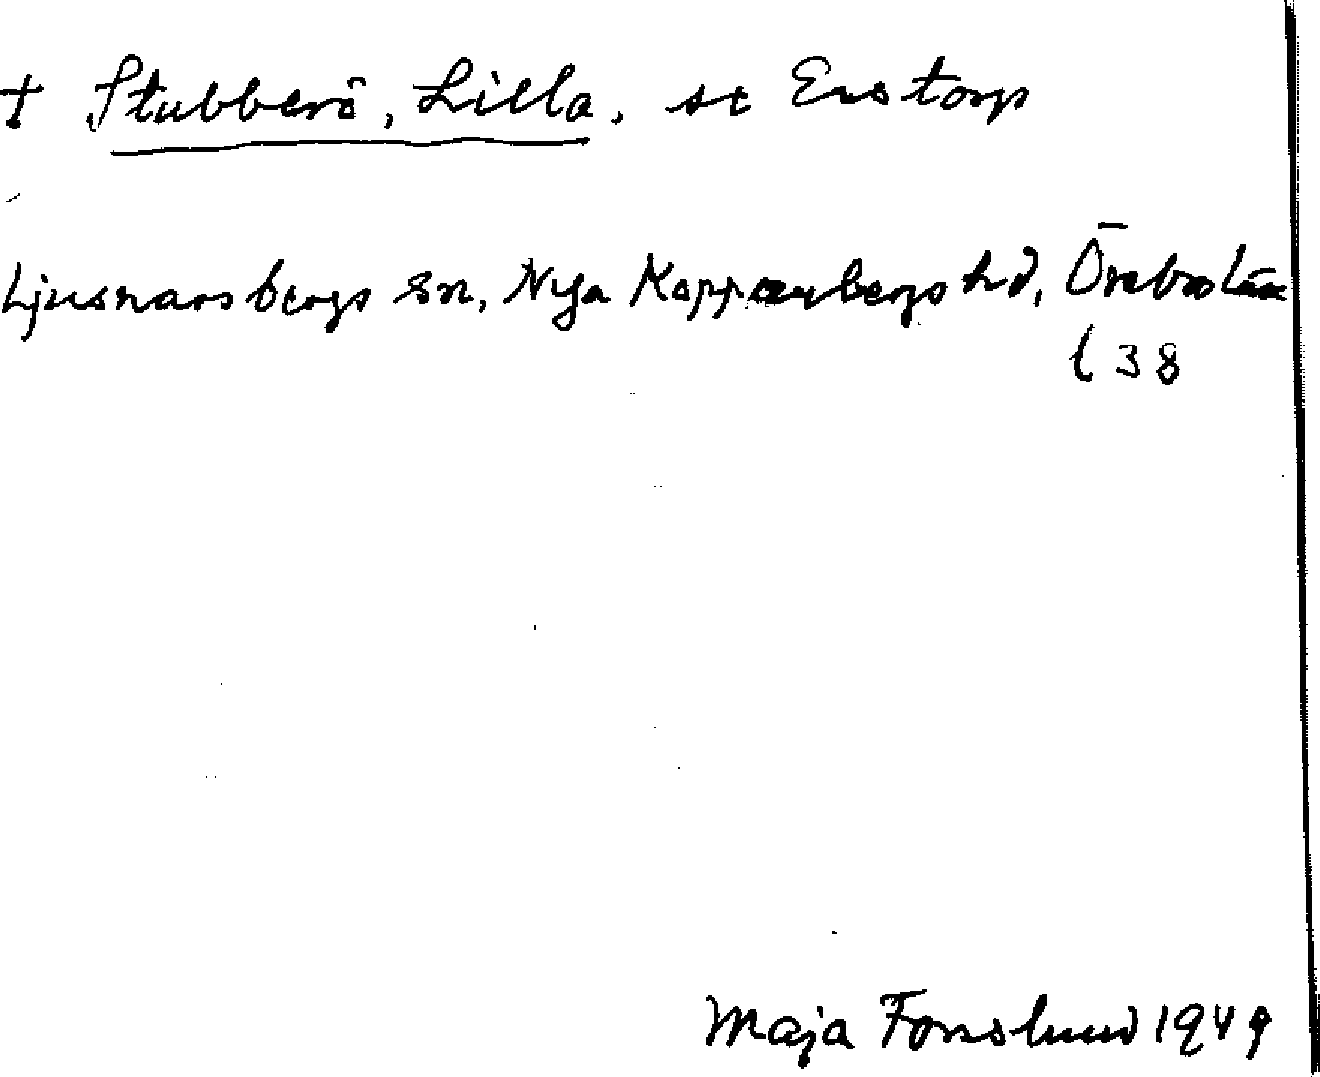 † Stubberö, Lilla, se Erstorp
Ljusnarsbergs sn, Nya Kopparbergs hd, Örebro län
(38
Maja Forsslund 1949